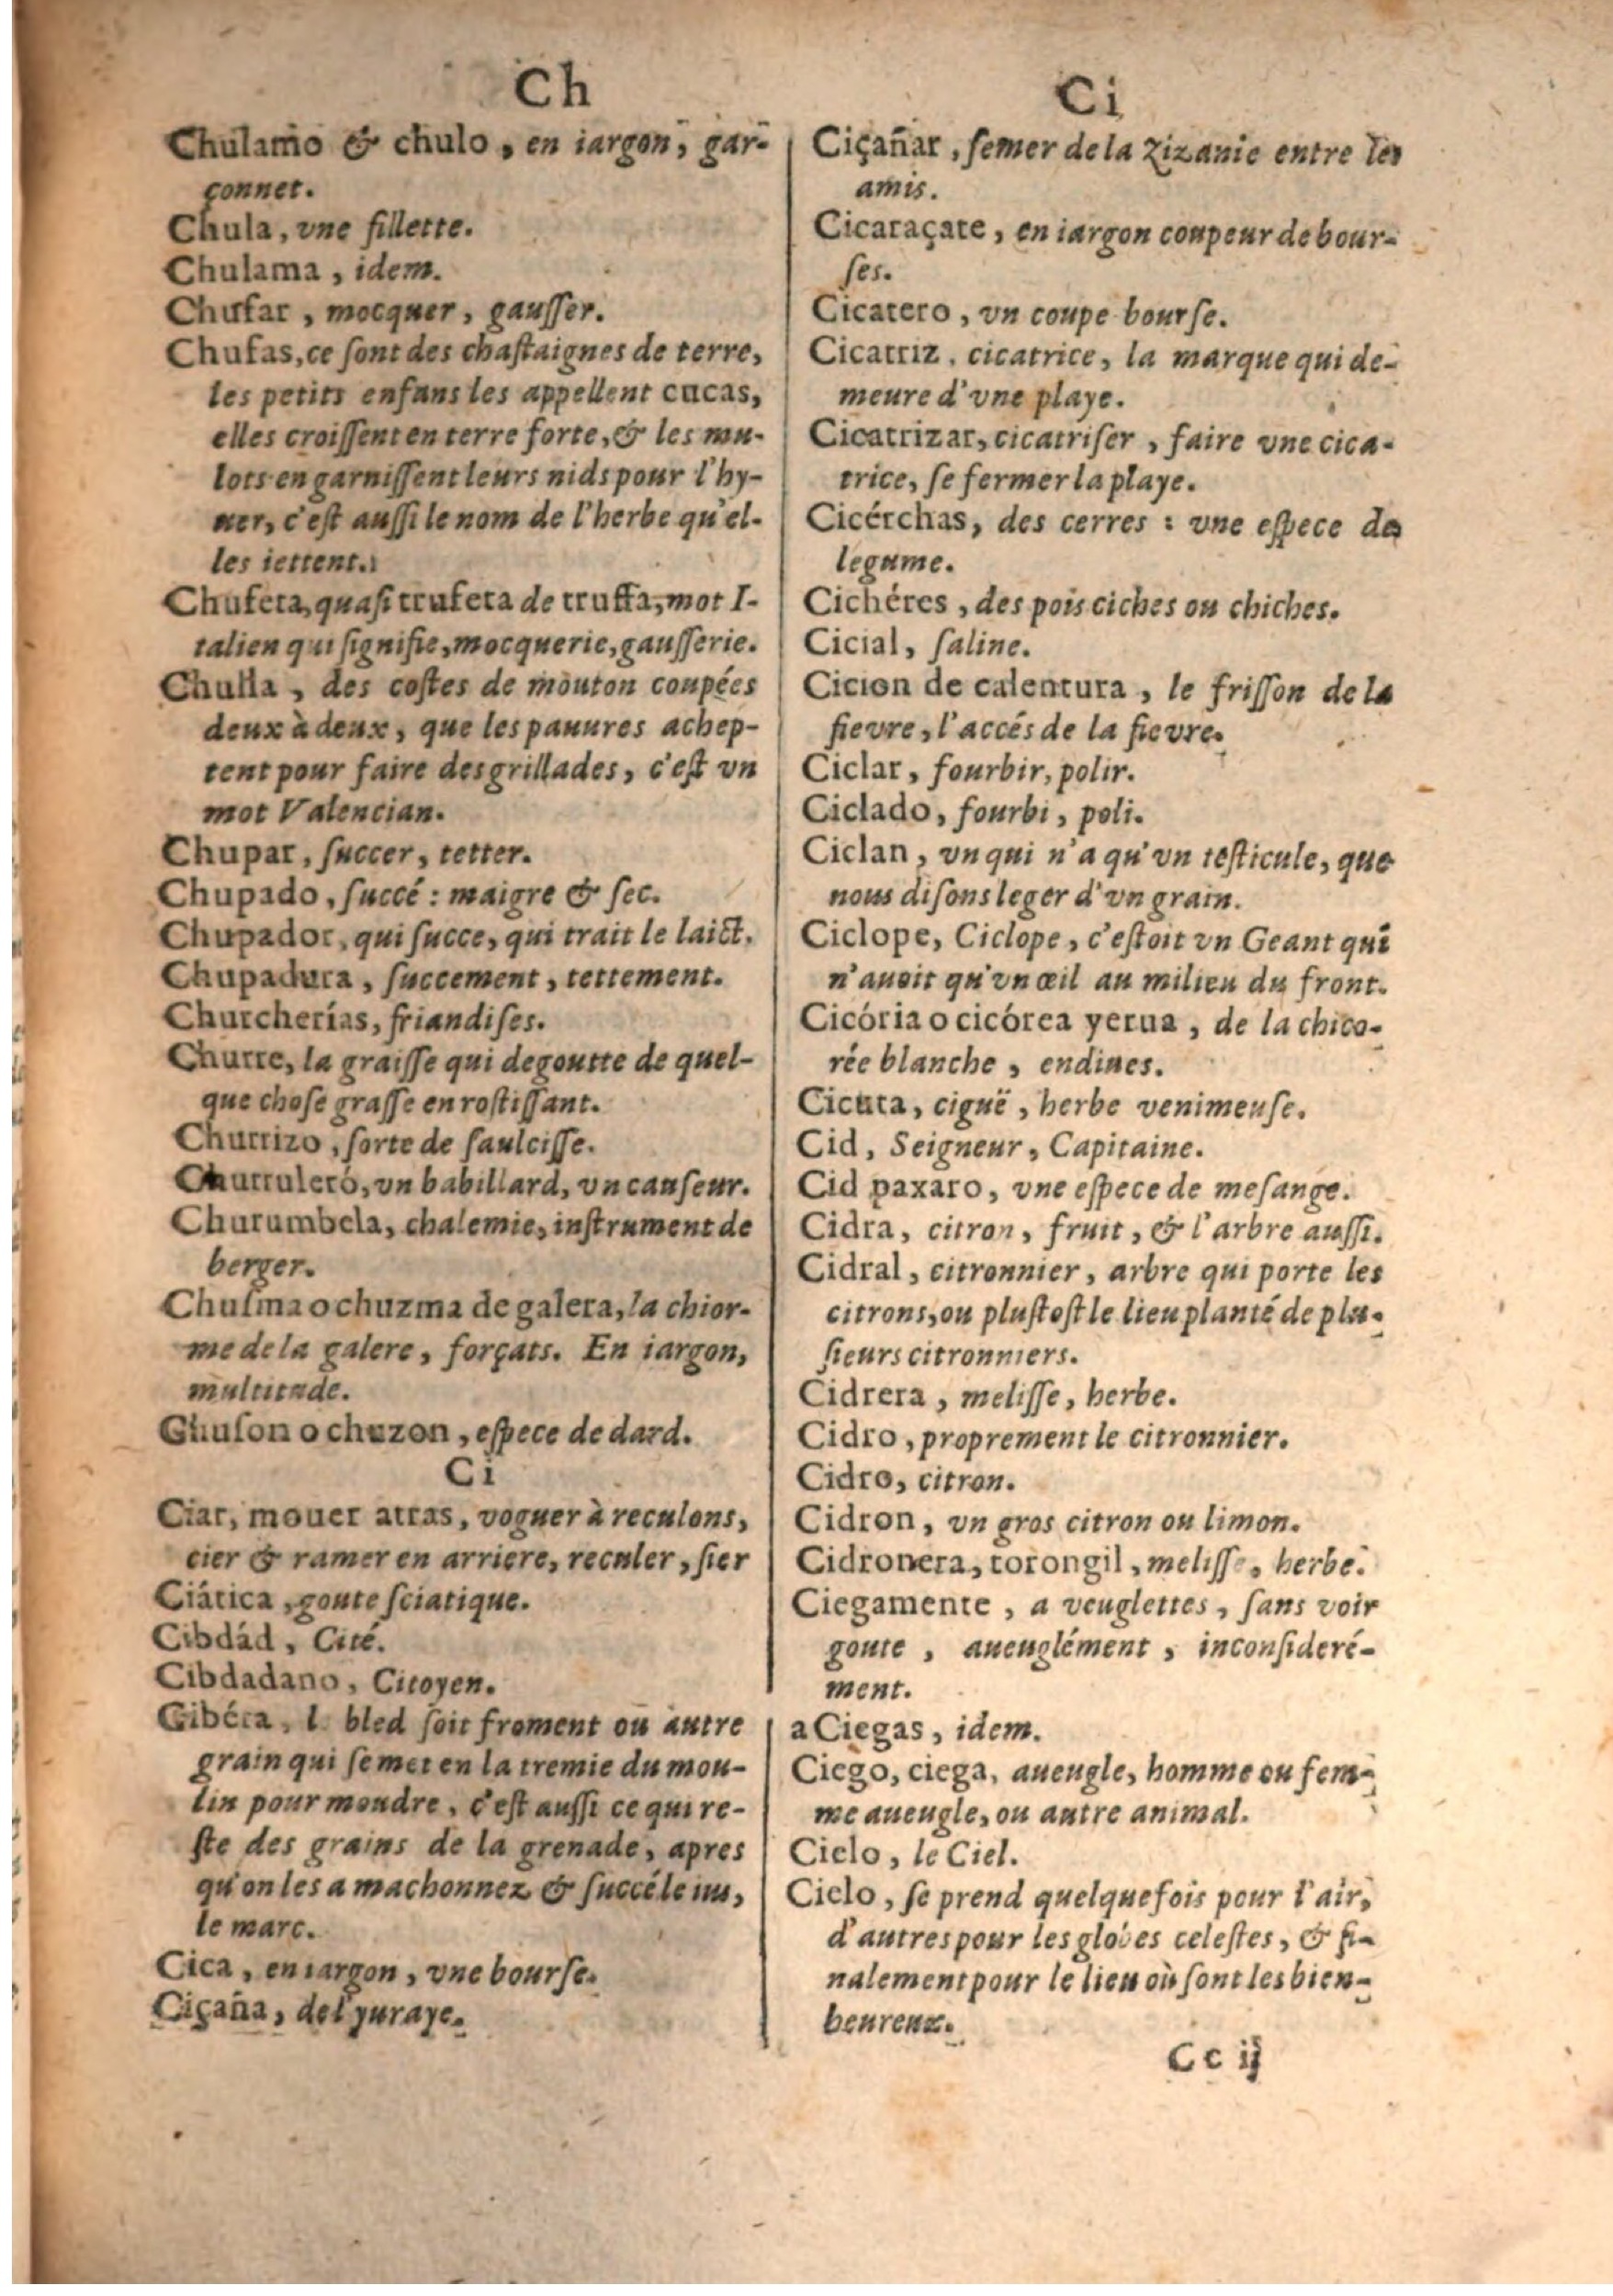 Ch
Chulamo & chulo, en iargon, gar-
çonnet.
Chula, vne fillette.
Chulama, idem.
Chufar, mocquer, gauſſer.
Chufas, ce ſont des chaſtaignes de terre,
les petits enfans les appellent cucas,
elles croiſſent en terre forte, & les mu-
lots en garniſſent leurs nids pour l'hy-
uer, c'eſt auſſi le nom de l'herbe qu'el-
les iettent.
Chufeta, quaſi trufeta de truffa, mot I-
talien qui ſignifie, mocquerie, gauſſerie.
Chulla, des coſtes de mouton coupées
deux à deux, que les pauures achep-
tent pour faire des grillades, c'eſt vn
mot Valencian.
Chupar, ſuccer, tetter.
Chupado, ſuccé : maigre & ſec.
Chupador, qui ſucce, qui trait le laict.
Chupadura, ſuccement, tettement.
Churcherías, friandiſes.
Churre, la graiſſe qui degoutte de quel-
que choſe graſſe en roſtiſſant.
Churrizo, ſorte de ſaulciſſe.
Churruleró, vn babillard, vn cauſeur.
Churumbela, chalemie, inſtrument de
berger.
Chuſma o chuzma de galera, la chior-
me de la galere, forçats. En iargon,
multitude.
Chuſon o chuzon, eſpece de dard.
Ci
Ciar, mouer atras, voguer à reculons,
cier & ramer en arriere, reculer, ſier
Ciática, goute ſciatique.
Cibdád, Cité.
Cibdadano, Citoyen.
Cibéra, l bled ſoit froment ou autre
grain qui ſe met en la tremie du mou-
lin pour moudre, c'eſt auſſi ce qui re-
ſte des grains de la grenade, apres
qu'on les a machonnez & ſuccé le ius,
le marc.
Cica, en iargon, vne bourſe.
Ciçaña, de l'yuraye.
Ci
Ciçañar, ſemer de la Zizanie entre les
amis.
Cicaraçate, en iargon coupeur de bour-
ſes.
Cicatero, vn coupe bourſe.
Cicatriz, cicatrice, la marque qui de-
meure d'vne playe.
Cicatrizar, cicatriſer, faire vne cica-
trice, ſe fermer la playe.
Cicérchas, des cerres : vne eſpece de
legume.
Cichéres, des pois ciches ou chiches.
Cicial, ſaline.
Cicion de calentura, le friſſon de la
fievre, l'accés de la fievre.
Ciclar, fourbir, polir.
Ciclado, fourbi, poli.
Ciclan, vn qui n'a qu'vn teſticule, que
nous diſons leger d'vn grain.
Ciclope, Ciclope, c'eſtoit vn Geant qui
n'auoit qu'vn œil au milieu du front.
Cicória o cicórea yerua, de la chico-
rée blanche, endiues.
Cicuta, ciguë, herbe venimeuſe.
Cid, Seigneur, Capitaine.
Cid paxaro, vne eſpece de meſange.
Cidra, citron, fruit, & l'arbre auſſi.
Cidral, citronnier, arbre qui porte les
citrons, ou pluſtoſt le lieu planté de plu-
ſieurs citronniers.
Cidrera, meliſſe, herbe.
Cidro, proprement le citronnier.
Cidro, citron.
Cidron, vn gros citron ou limon.
Cidronera, torongil, meliſſe, herbe.
Ciegamente, a veuglettes, ſans voir
goute, aueuglément, inconſideré-
ment.
a Ciegas, idem.
Ciego, ciega, aueugle, homme ou fem-
me aueugle, ou autre animal.
Cielo, le Ciel.
Cielo, ſe prend quelquefois pour l'air,
d'autres pour les globes celeſtes, & fi-
nalement pour le lieu où ſont les bien-
heureux.
Cc ij